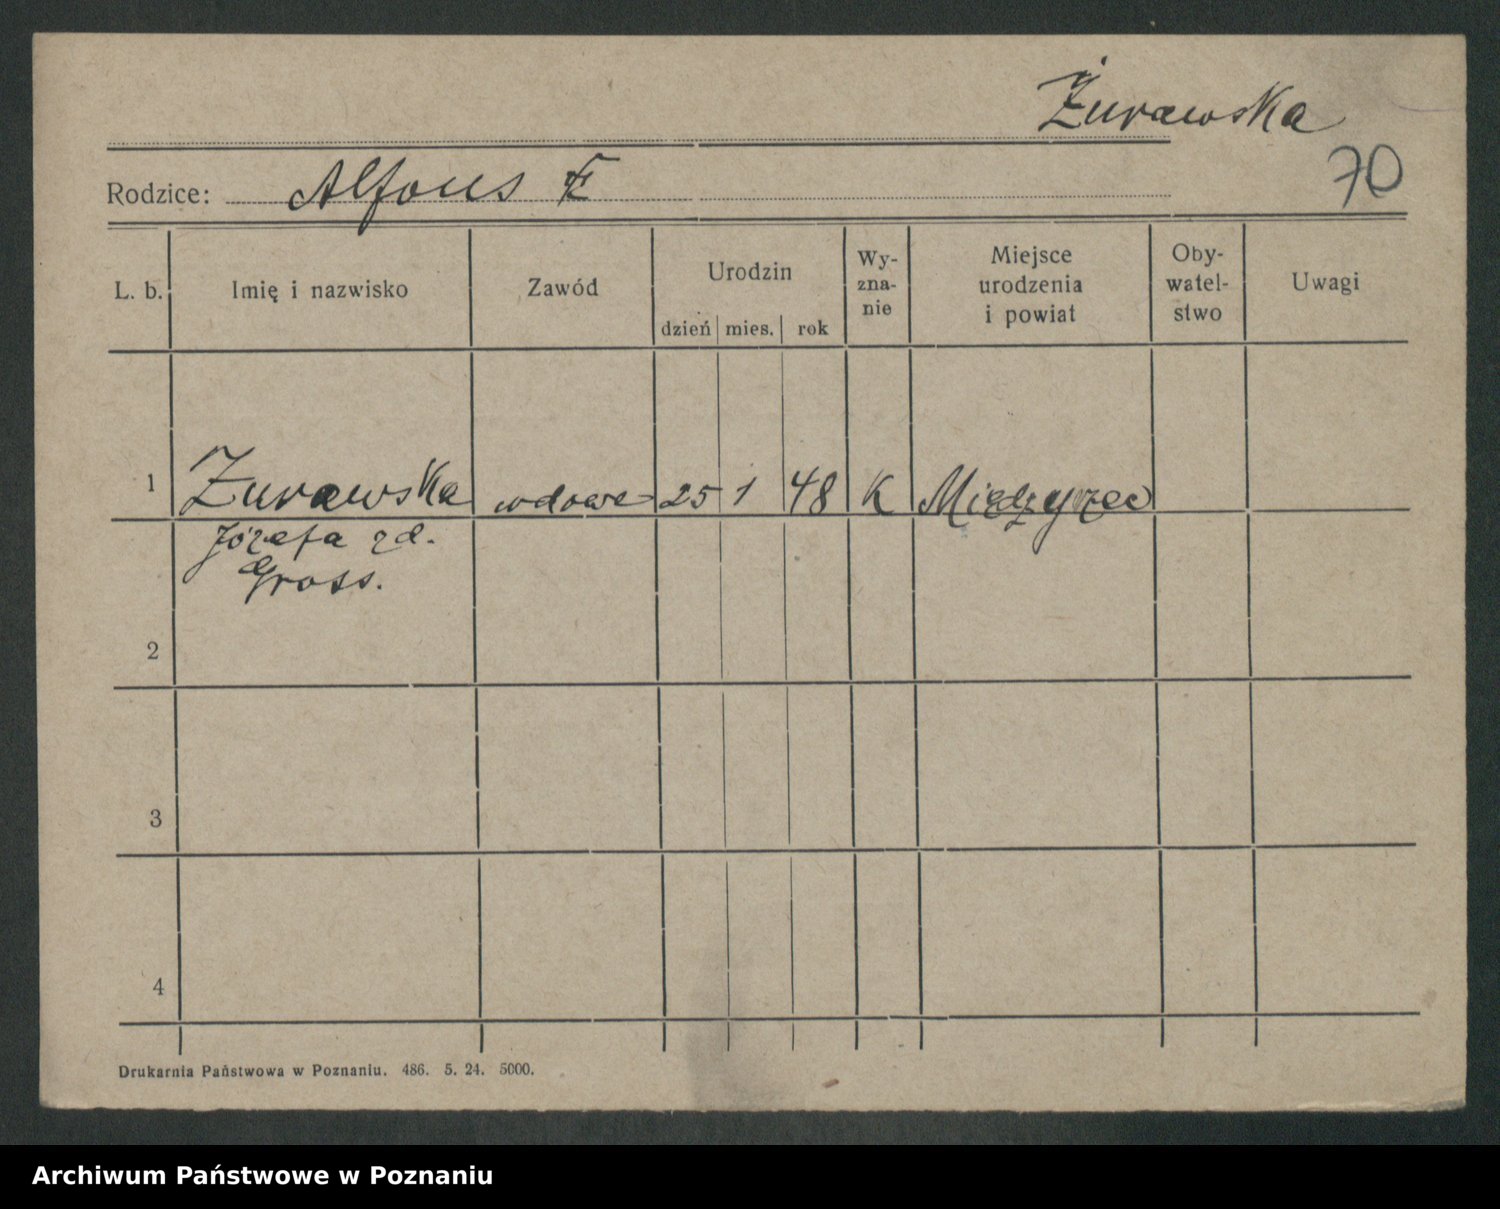 Żurawska
70
Rodzice: Alfons
L. b. Imię i nazwisko Zawód Urodzin dzień mies. rok Wy-zna-nie Miejsce urodzenia i powiat Oby-watel-stwo Uwagi
1 Żurawska wdowa 25 1 48 K Międzyrzec
Józefa zd.
Gross.
2
3
4
Drukarnia Państwowa w Poznaniu. 486. 5. 24. 5000.
Archiwum Państwowe w Poznaniu